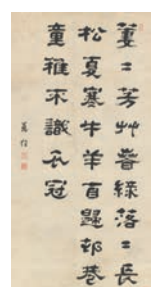 萋二芳艸春綠落二長
松夏寒牛羊自歸邨巷
童稚不識衣冠